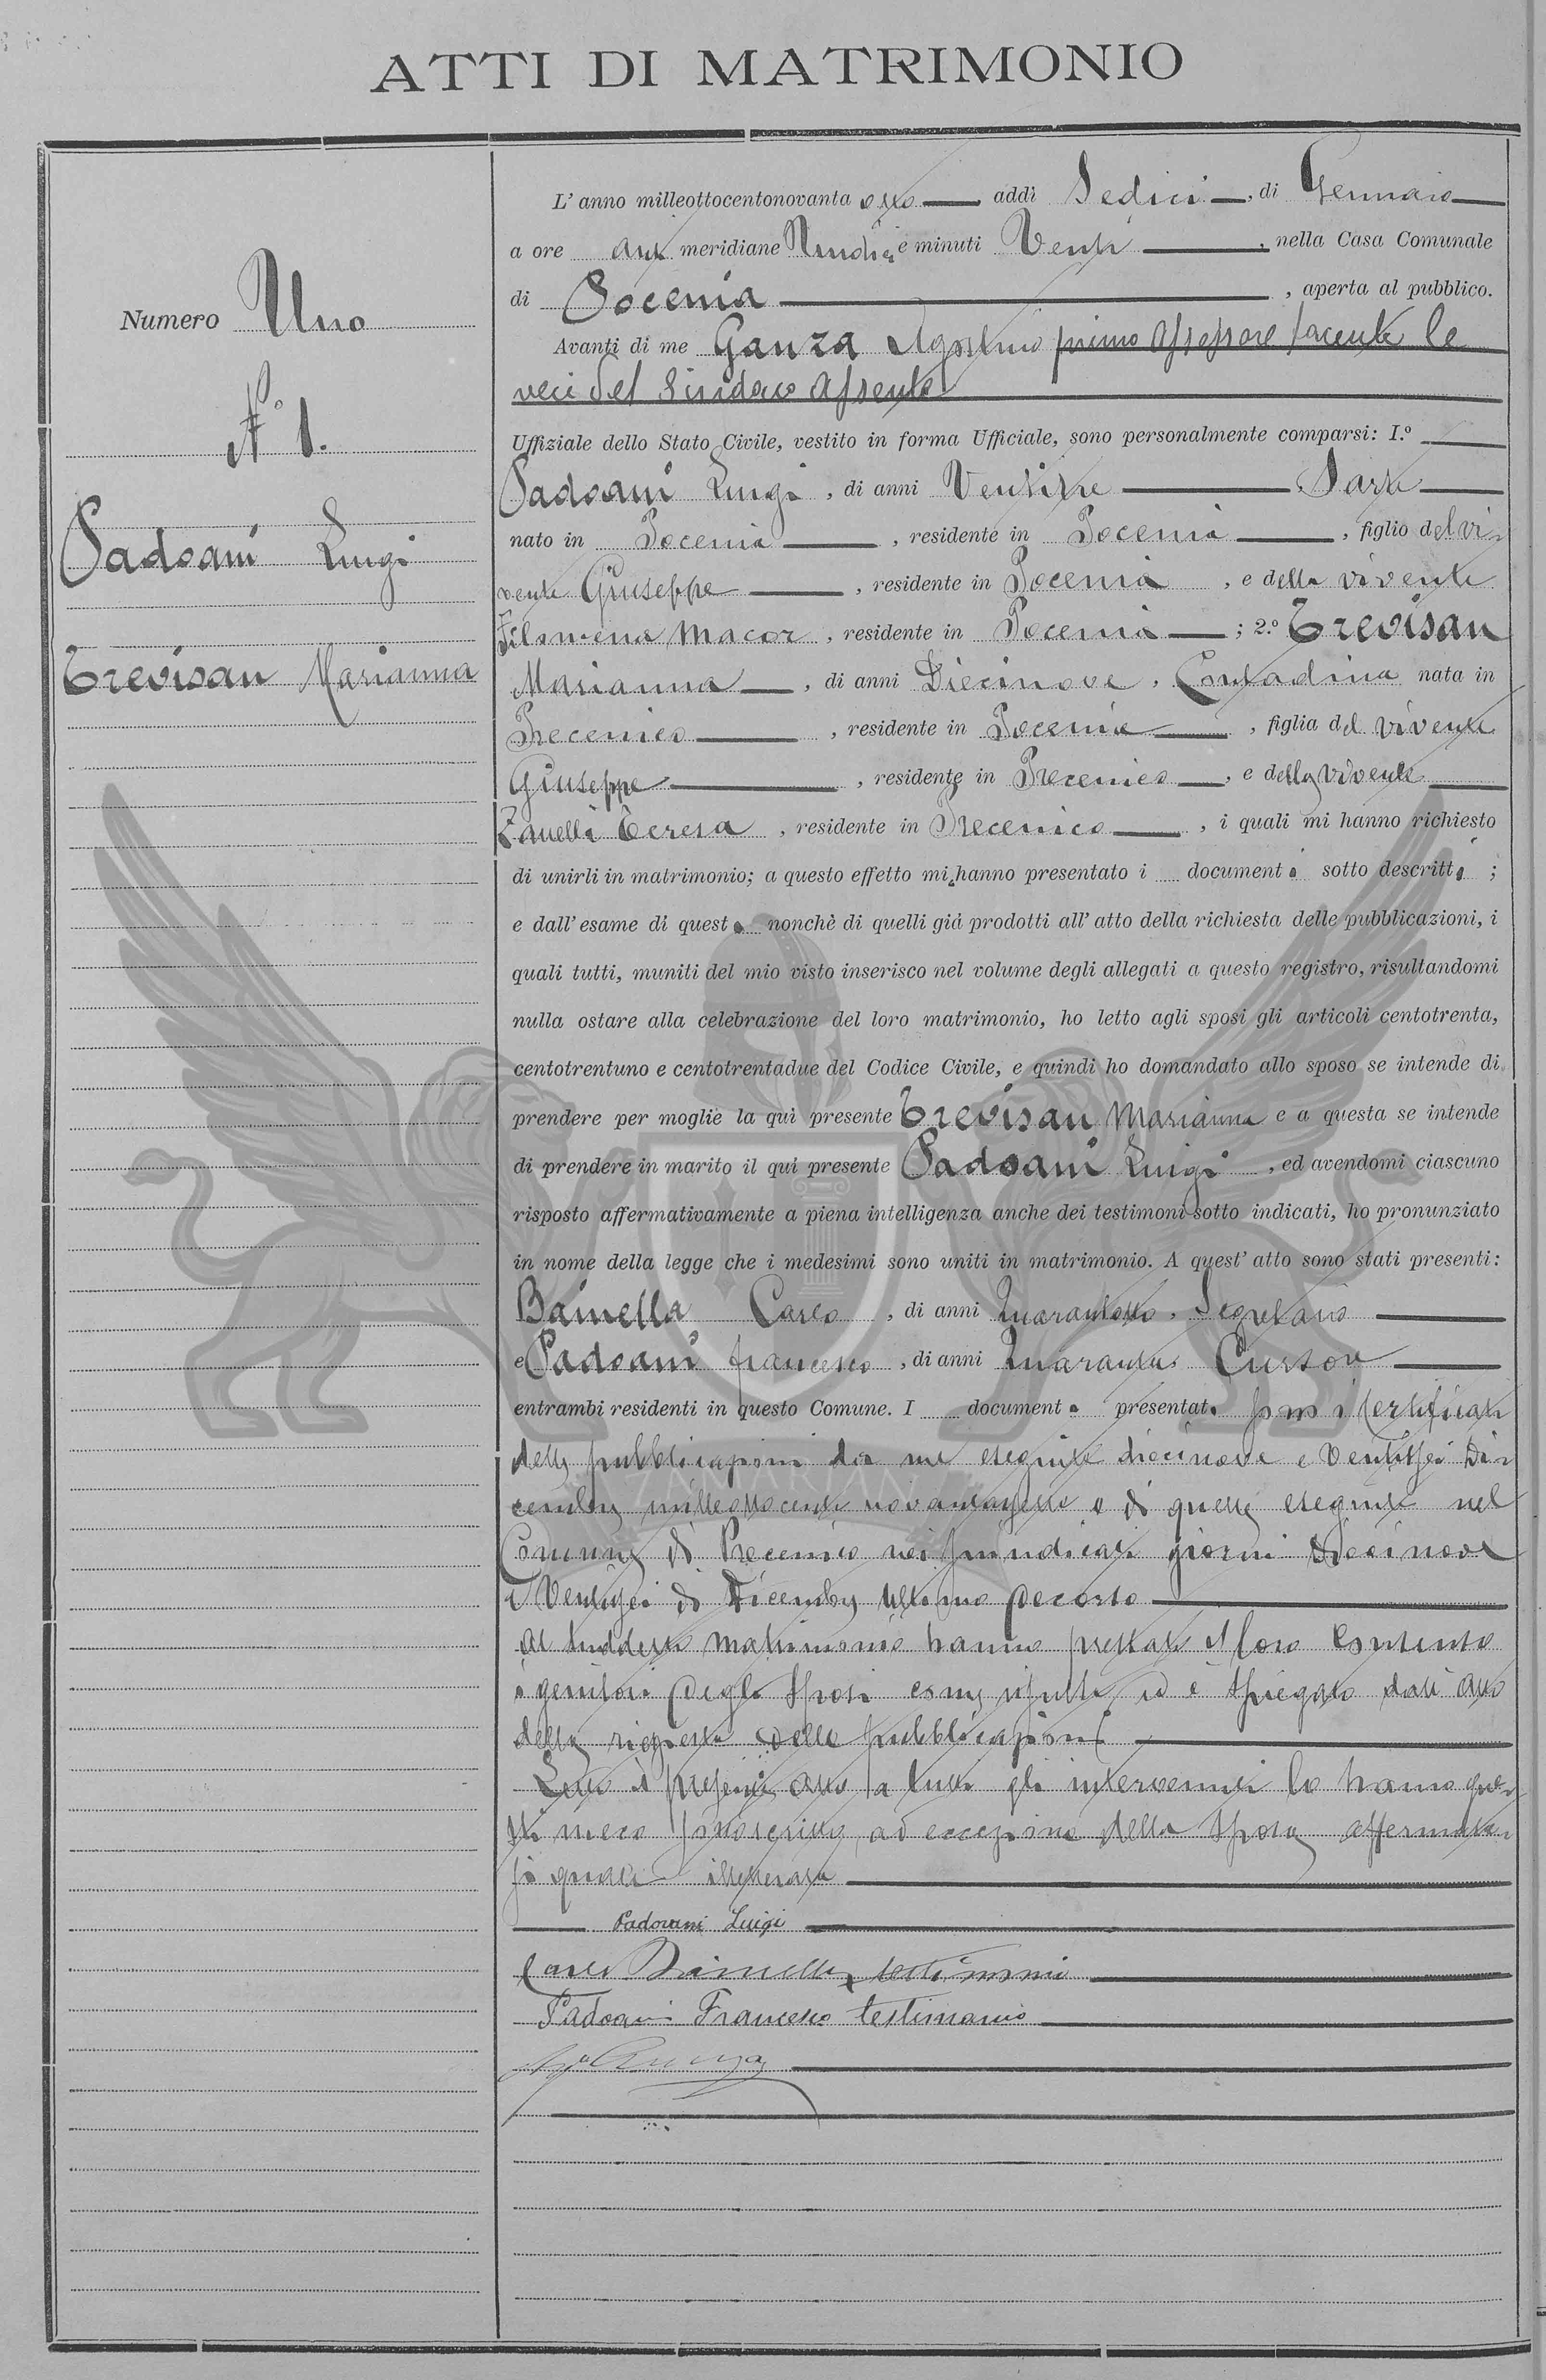 ATTI DI MATRIMONIO
Numero Uno
N° 1.
Padoani Luigi
Trevisan Marianna
L' anno milleottocentonovanta otto addì Sedici, di Gennaio
a ore anti meridiane Undici e minuti Venti, nella Casa Comunale
di Pocenia, aperta al pubblico.
Avanti di me Ganza Agostino primo Assessore facente le
veci del Sindaco assente
Uffiziale dello Stato Civile, vestito in forma Ufficiale, sono personalmente comparsi: I.°
Padoani Luigi, di anni Ventitre, Sarto
nato in Pocenia, residente in Pocenia, figlio del vi-
vente Giuseppe, residente in Pocenia, e della vivente
Filomena Macor, residente in Pocenia; 2.° Trevisan
Marianna, di anni Diecinove, Contadina nata in
Precenico, residente in Pocenia, figlia del vivente
Giuseppe, residente in Precenico, e della vivente
Zanelli Teresa, residente in Precenico, i quali mi hanno richiesto
di unirli in matrimonio; a questo effetto mi hanno presentato i documenti sotto descritti;
e dall' esame di questi nonchè di quelli già prodotti all' atto della richiesta delle pubblicazioni, i
quali tutti, muniti del mio visto inserisco nel volume degli allegati a questo registro, risultandomi
nulla ostare alla celebrazione del loro matrimonio, ho letto agli sposi gli articoli centotrenta,
centotrentuno e centotrentadue del Codice Civile, e quindi ho domandato allo sposo se intende di
prendere per moglie la quì presente Trevisan Marianna e a questa se intende
di prendere in marito il quì presente Padoani Luigi, ed avendomi ciascuno
risposto affermativamente a piena intelligenza anche dei testimoni sotto indicati, ho pronunziato
in nome della legge che i medesimi sono uniti in matrimonio. A quest' atto sono stati presenti:
Bainella Carlo, di anni Quarantotto, Segretario
e Padoani Francesco, di anni Cursore
entrambi residenti in questo Comune. I documenti presentati sono i Certificati
delle pubblicazioni da me eseguite diecinove e Ventisei Di-
cembre milleottocento novantasette e di quelle eseguite nel
Comune di Precenico nei giorni Diecinove
e Ventisei di Dicembre ultimo decorso
Al suddetto matrimonio hanno prestato il loro consenso
i genitori degli sposi come risulta ed è spiegato dall'atto
della richiesta delle pubblicazioni
Letto il presente atto a tutti gli intervenuti lo hanno que-
sti meco sottoscritto, ad eccezione della sposa affermata-
si quale illetterata
Padovani Luigi
Carlo Bainella testimonio
Padoani Francesco testimonio